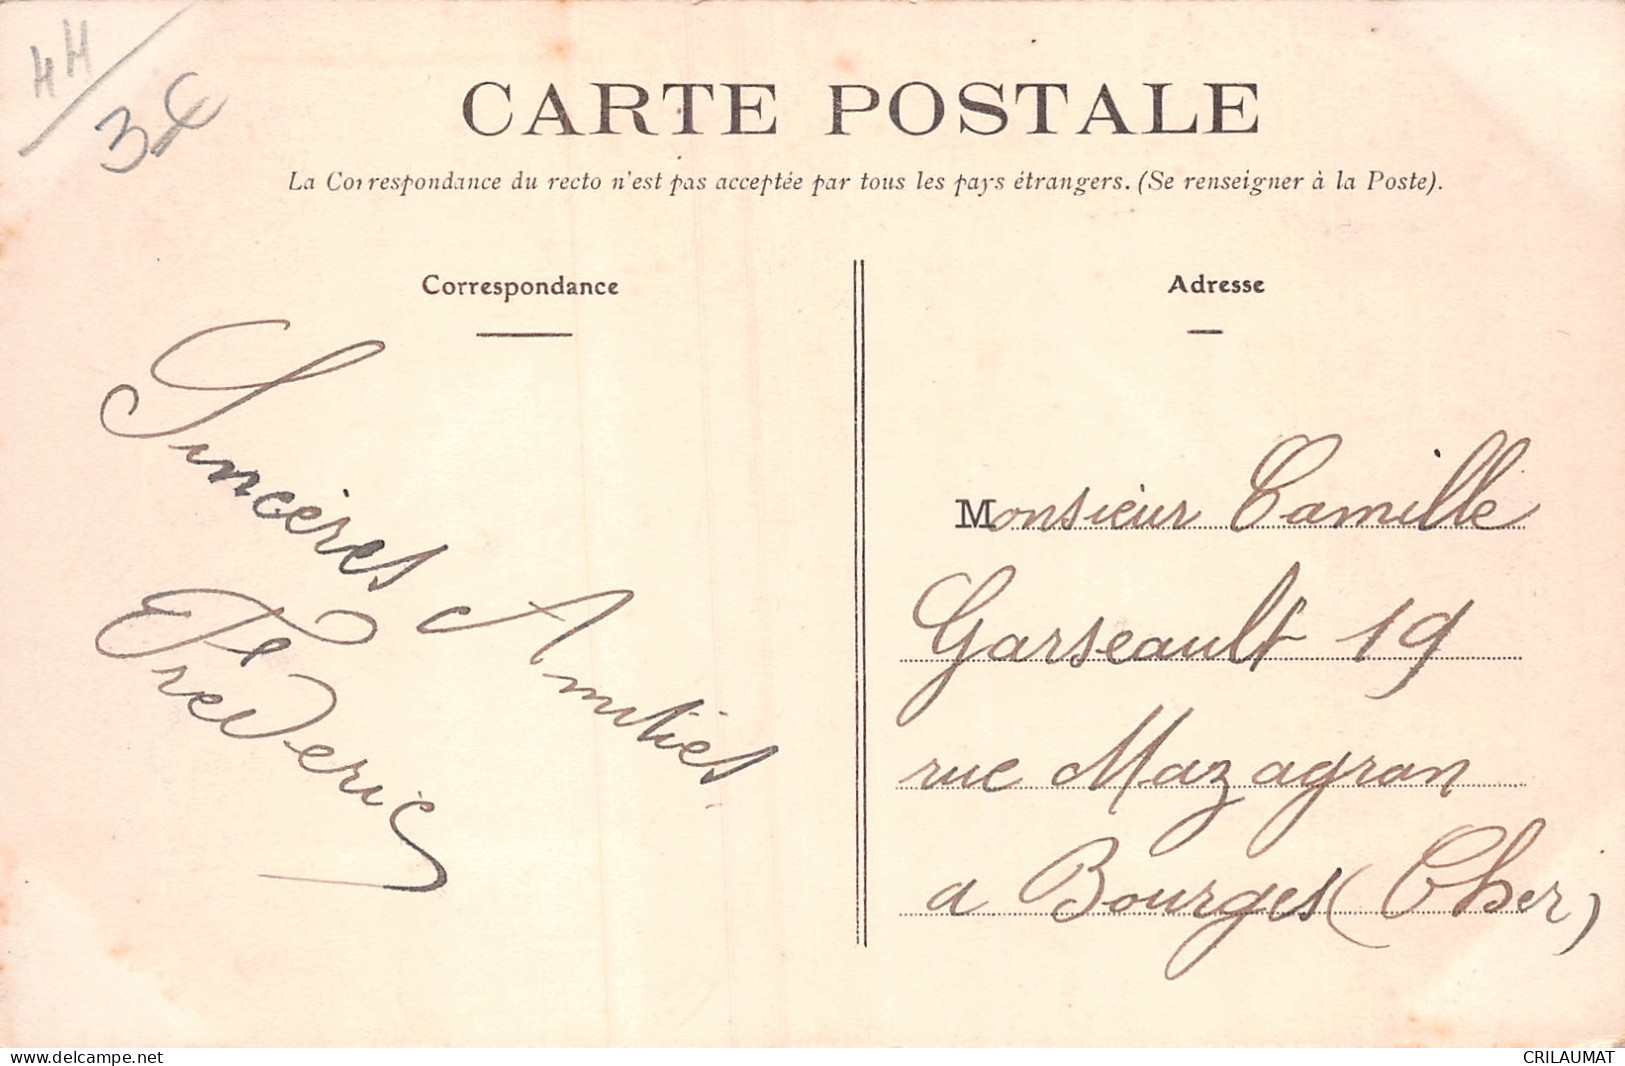 44
3€
CARTE POSTALE
La Correspondance du recto n'est pas acceptée par tous les pays étrangers. (Se renseigner à la Poste).
Correspondance
Adresse
Sincères Amitiés
Frederic
Monsieur Camille
Garseault 19
rue Mazagran
a Bourges (Cher)
www.delcampe.net
CRILAUMAT